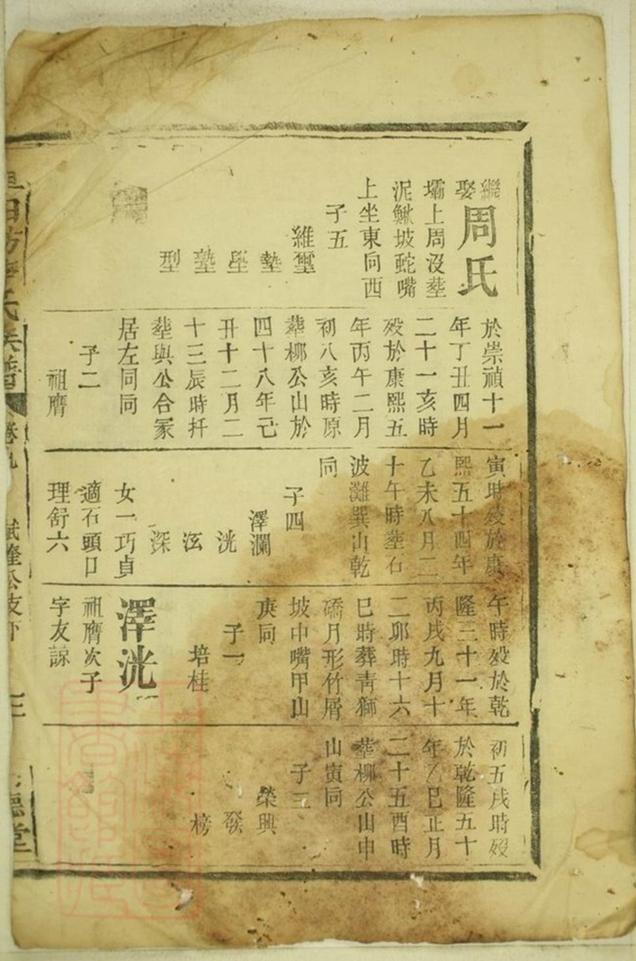 繼娶周氏
壩上周沒塟
泥鰍坡蛇嘴
上坐東向西
子五
維璽
塾
壆
塈
型
於崇禎十一
年丁丑四月
二十一亥時
歿於康熙五
年丙午二月
初八亥時原
塟柳公山於
四十八年己
丑十二月二
十三辰時扦
塟與公合冢
居左同向
子二
祖膺
寅時歿於康
熙五十四年
乙未八月二
十午時塟石
波灘巽山乾
向
子四
澤瀾
洸
泫
深
女一巧貞
適石頭口
理舒六
午時歿於乾
隆三十一年
丙戌九月十
二卯時十六
巳時葬青獅
礄月形竹屑
坡中嘴甲山
庚向
子一
培桂
澤洸
祖膺次子
字友諒
初五戌時歿
於乾隆五十
年乙巳正月
二十五酉時
塟柳公山中
山寅向
子三
榮興
發
榜
氏族譜
卷九
公支下
三
德堂